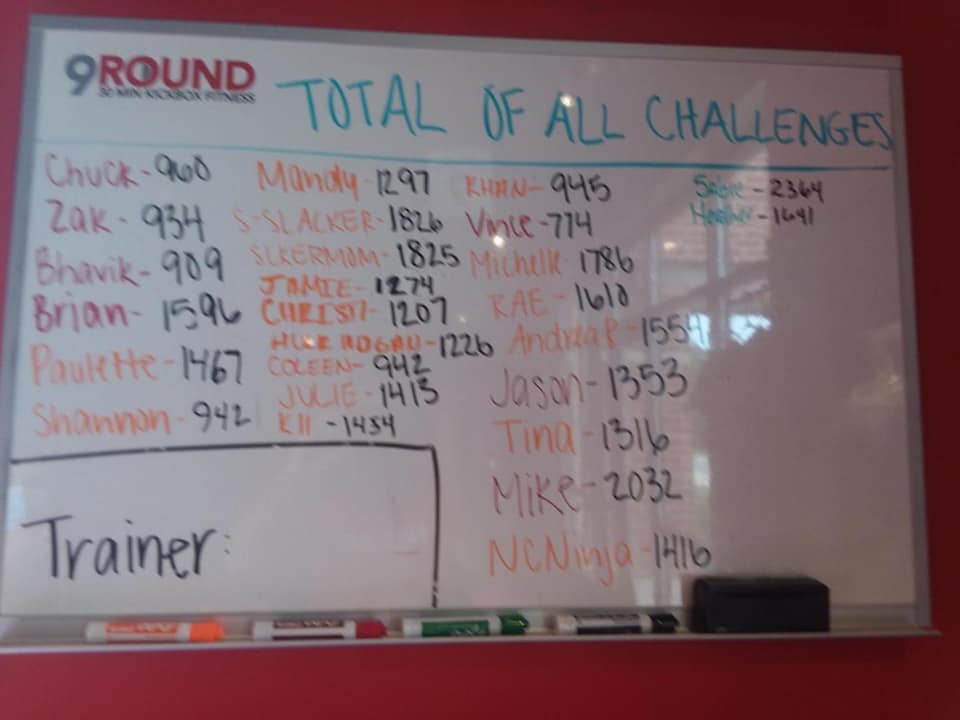 9ROUND
30 MIN KICKBOX FITNESS
TOTAL OF ALL CHALLENGES
Chuck-960
Zak-934
Bhavik-909
Brian-1596
Paulette-1467
Shannon-942
Mandy-1297
S-SLACKER-1826
SLKERMOM-1825
JAMIE-1274
CHRISTI-1207
-1226
COLEEN-942
JULIE-1413
KII-1434
KHAN-945
Vince-774
Michelle 1786
RAE-1610
AndreaP-1554
Jason-1353
Tina-1316
Mike-2032
NCNinja-1416
-2364
Heather-1641
Trainer: